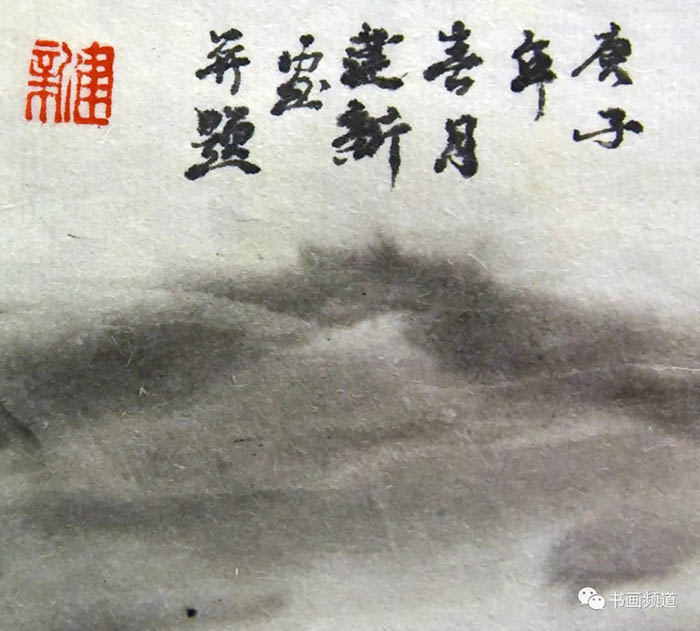 庚子
年
春月
建新
画
并题
建新
书画频道